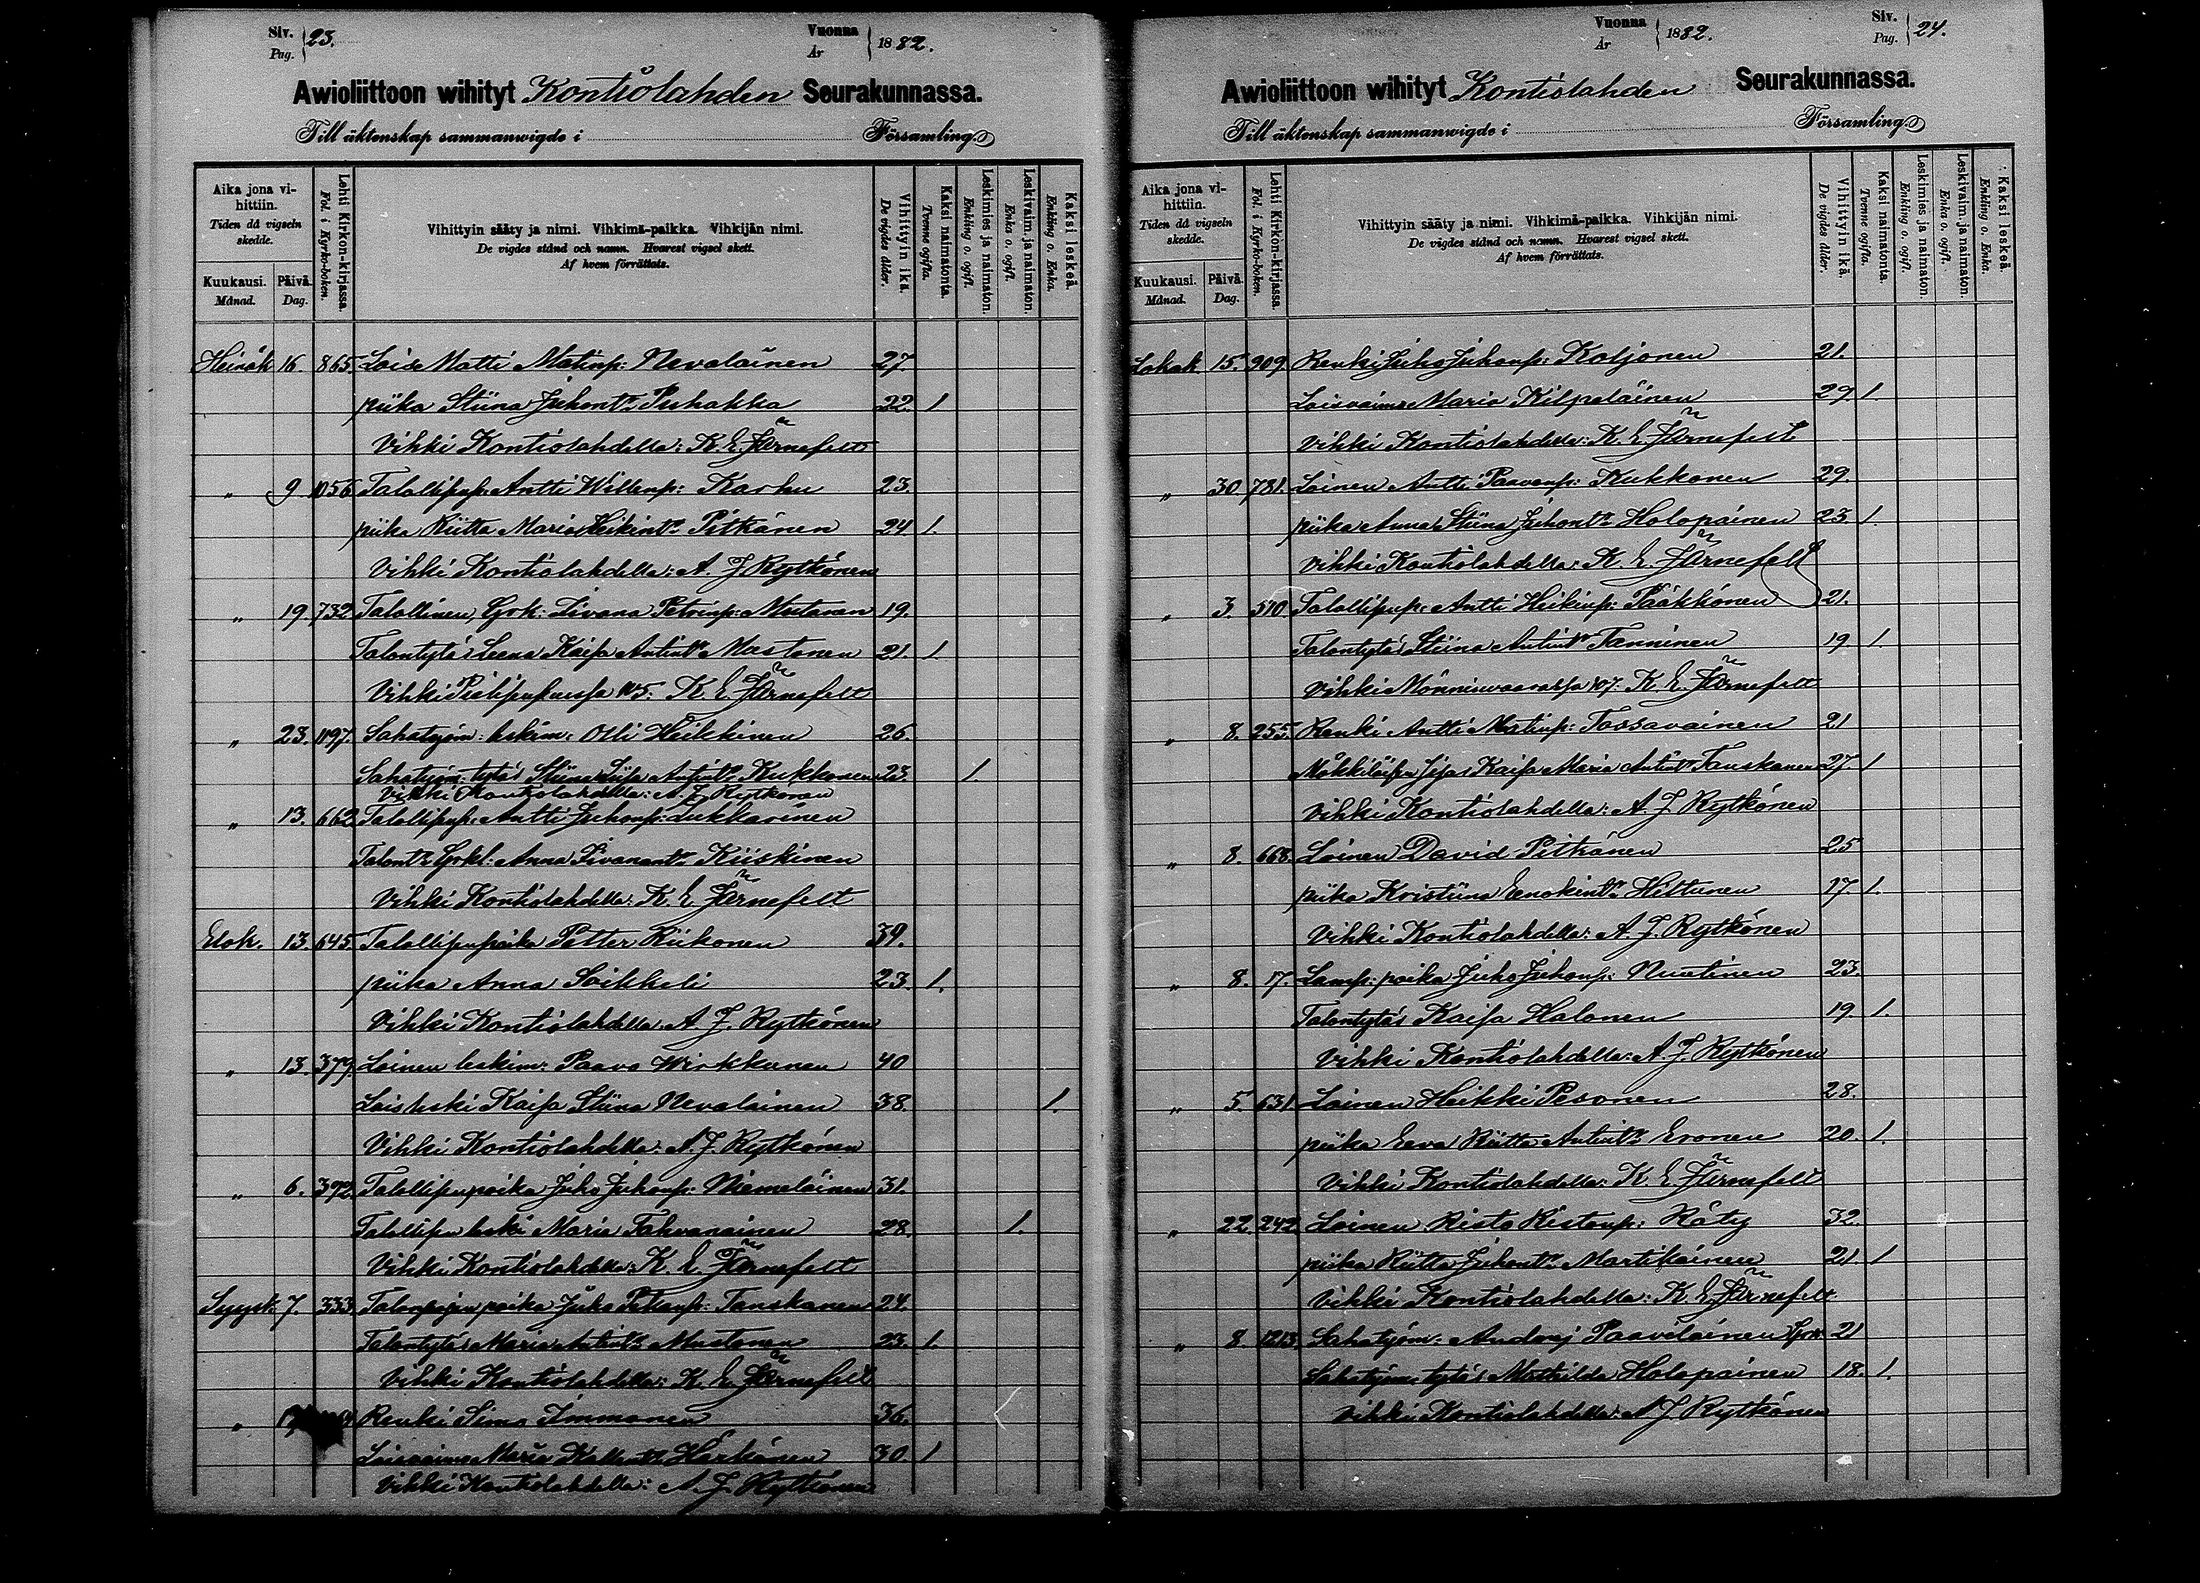 Siv. Pag. 23.
Vuonna År 1882.
Awioliittoon wihityt Kontiolahden Seurakunnassa.
Till äktenskap sammanwigde i Församling.
Aika jona vihittiin. Tiden då vigseln skedde.
Kuukausi. Månad. Päivä. Dag.
Lehti Kirkon-kirjassa. Fol. i Kyrko-boken.
Vihittyin sääty ja nimi. Vihkimä-paikka. Vihkijän nimi.
De vigdes stånd och namn. Hvarest vigsel skett.
Af hvem förrättats.
Vihittyin ikä. De vigdes ålder.
Kaksi naimatonta. Tvenne ogifta.
Leskimies ja naimaton. Enkling o. ogift.
Leskivaim. ja naimaton. Enka o. ogift.
Kaksi leskeä. Enkling o. Enka.
Heinäk 16 865. Lois Matti Matinp: Nevalainen 27.
piika Stiina Juhont: Puhakka 22. 1
Vihki Kontiolahdella: K. E. Järnefelt
" 9 1056 Talollisp: Antti Willenp: Karhu 23.
piika Riitta Maria Heikint: Pitkänen 24 1.
Vihki Kontiolahdella: A. J Rytkönen
" 19. 732 Talollinen, Grk: Iivana Petrinp: Mustonen 19.
Talontytär Leena Kaisa Antint: Mustonen 21. 1.
Vihki 105. K. E. Järnefelt
" 23. 1197. Sahatyöm: leskim: Olli Heikkinen 26.
Sahatyöm: tytär Stiina Liisa Antint: Kukkonen 23 1
Vihki Kontiolahdella: A. J. Rytkönen
" 13. 662 Talollisp: Antti Juhonp: Lukkarinen
Talont: Grkl: Anna Iivanant: Kiiskinen
Vihki Kontiolahdella: K. E Järnefelt
Elok. 13. 645. Talollisenpoika Petter Riikonen 39.
piika Anna Soikkeli 23. 1.
Vihki Kontiolahdella: A. J. Rytkönen
" 13. 379. Loinen leskim: Paavo Wirkkunen 40
Loisleski Kaisa Stiina Nevalainen 38. 1.
Vihki Kontiolahdella: A. J. Rytkönen
" 6. 372. Talollisenpoika Juho Juhonp: Niemeläinen 31.
Talollisen leski Maria Tahvanainen 28. 1.
Vihki Kontiolahdella: K. E. Järnefelt
Syysk. 7. 333. poika Juho Tanskanen 24.
Talontytär Maria Antint: Mustonen 23. 1.
Vihki Kontiolahdella: K. E. Järnefelt
" Renki Simo Immonen 36.
Loisvaimo Maria Härkönen 30 1
Vihki Kontiolahdella: A. J. Rytkönen
Vuonna År 1882.
Siv. Pag. 24.
Awioliittoon wihityt Kontiolahden Seurakunnassa.
Till äktenskap sammanwigde i Församling.
Aika jona vihittiin. Tiden då vigseln skedde.
Kuukausi. Månad. Päivä. Dag.
Lehti Kirkon-kirjassa. Fol. i Kyrko-boken.
Vihittyin sääty ja nimi. Vihkimä-paikka. Vihkijän nimi.
De vigdes stånd och namn. Hvarest vigsel skett.
Af hvem förrättats.
Vihittyin ikä. De vigdes ålder.
Kaksi naimatonta. Tvenne ogifta.
Leskimies ja naimaton. Enkling o. ogift.
Leskivaim. ja naimaton. Enka o. ogift.
Kaksi leskeä. Enkling o. Enka.
Lokak 15. 909. Renki Juho Juhonp: Koljonen 21.
Loisvaimo Maria Kilpeläinen 29 1.
Vihki Kontiolahdella: K. E. Järnefelt
" 30 781. Loinen Antti Paavonp: Kukkonen 29.
piika Anna Stiina Juhont: Holopainen 23 1.
Vihki Kontiolahdella: K. E. Järnefelt
" 3. 510. Talollisp: Antti Heikinp: Pääkkönen 21.
Talontytär Stiina Antint: Tanninen 19. 1.
Vihki Mönninvaarassa 107. K. E. Järnefelt
" 8. 255. Renki Antti Matinp: Tossavainen 21
Kaisa Maria Antint: Tanskanen 27. 1
Vihki Kontiolahdella: A. J. Rytkönen
" 8. 668. Loinen David Pitkänen 25
piika Kristiina Eenokint: Hiltunen 17. 1.
Vihki Kontiolahdella: A. J. Rytkönen
" 8. 17. Lamp: poika Juho Juhonp: Nuutinen 23.
Talontytär Kaisa Halonen 19. 1.
Vihki Kontiolahdella: A. J. Rytkönen
" 5. 631. Loinen Heikki Pesonen 28.
piika Eeva Riitta Antint: Eronen 20. 1.
Vihki Kontiolahdella: K. E. Järnefelt
" 22. 242. Loinen Risto Ristonp: Räty 32.
piika Riitta Juhont: Martikainen 21. 1
Vihki Kontiolahdella: K. E. Järnefelt
" 8. 1213. Sahatyöm: Andrej Paavilainen Grk 21
Sahatyöm: tytär Mathilda Holopainen 18. 1.
Vihki Kontiolahdella: A J Rytkönen